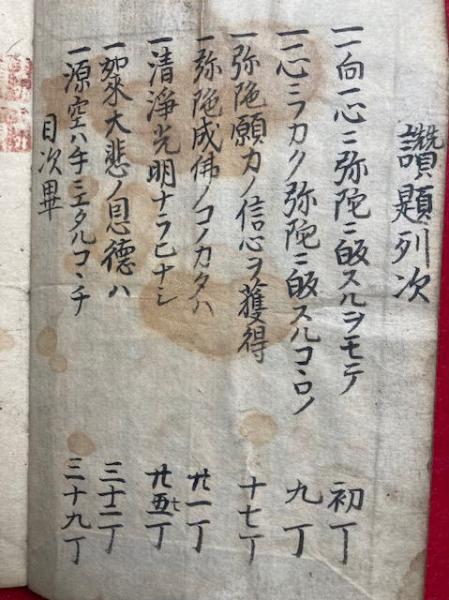 讃題列次
一一向一心ニ弥陀ニ皈スルヲモテ 初丁
一一心ミフカク弥陀ニ皈スルコヽロノ 九丁
一弥陀願力ノ信心ヲ獲得 十七丁
一弥陀成佛ノコノカタハ 廿一丁
一清淨光明ナラヒナシ 廿五七丁
一如來大悲ノ恩德ハ 三十二丁
一源空ハチミエタルコヽチ 三十九丁
目次畢